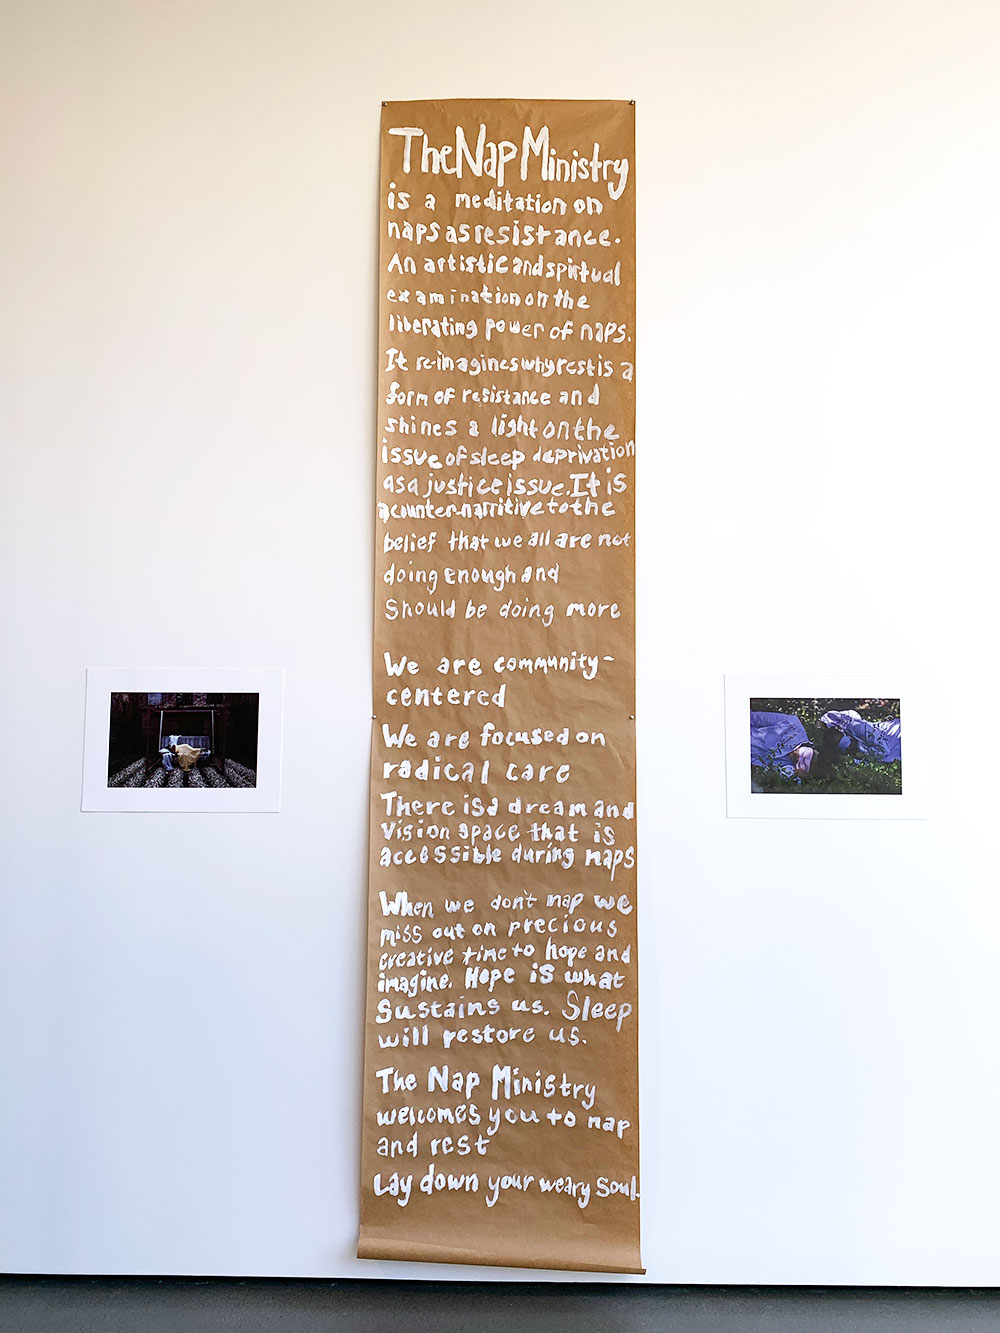 The Nap Ministry
is a meditation on
naps as resistance.
An artistic and spiritual
examination on the
liberating power of naps.
It re-imagines why rest is a
form of resistance and
shines a light on the
issue of sleep deprivation
as a justice issue. It is
a counter-narritive to the
belief that we all are not
doing enough and
Should be doing more
We are community-
centered
We are focused on
radical care
There is a dream and
Vision space that is
accessible during naps
When we don't nap we
miss out on precious
creative time to hope and
imagine. Hope is what
Sustains us. Sleep
will restore us.
The Nap Ministry
welcomes you to nap
and rest
Lay down your weary soul.